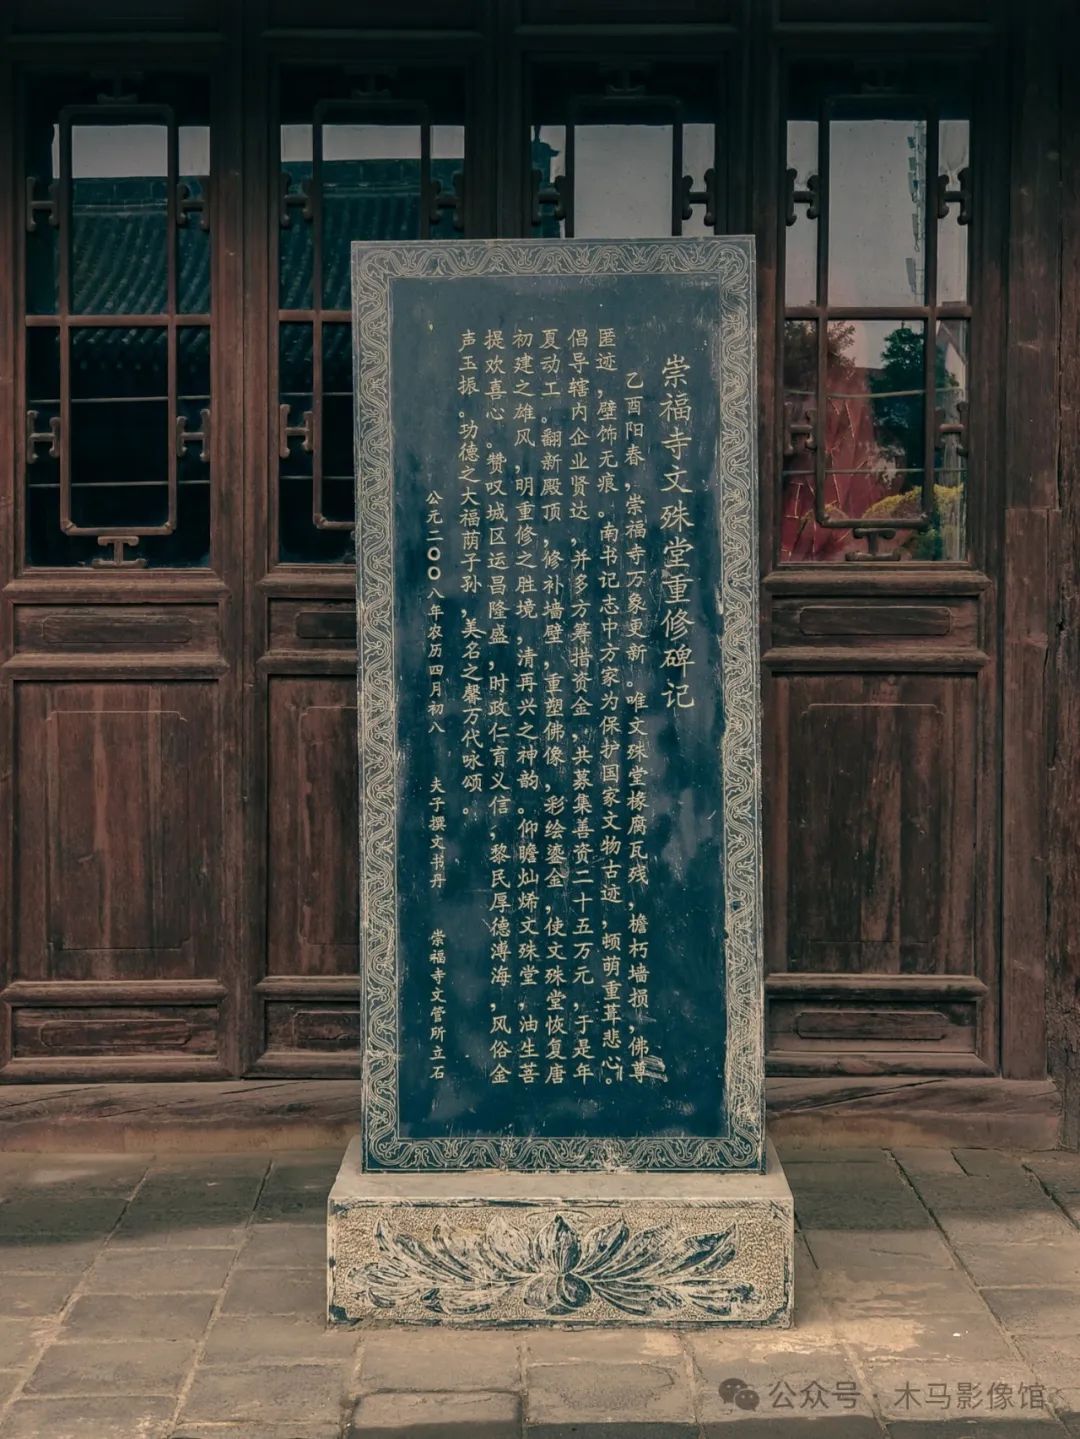 崇福寺文殊堂重修碑记
乙酉阳春，崇福寺万象更新。唯文殊堂椽腐瓦残，檐朽墙损，佛尊
匿迹，壁饰无痕。南书记志中方家为保护国家文物古迹，顿萌重葺悲心。
倡导辖内企业贤达，并多方筹措资金，共募集善资二十五万元，于是年
夏动工。翻新殿顶，修补墙壁，重塑佛像，彩绘鎏金，使文殊堂恢复唐
初建之雄风，明重修之胜境，清再兴之神韵。仰瞻灿烯文殊堂，油生菩
提欢喜心。赞叹城区运昌隆盛，时政仁育义信，黎民厚德溥海，风俗金
声玉振。功德之大福荫子孙，美名之馨万代咏颂。
公元二〇〇八年农历四月初八 夫子撰文书丹 崇福寺文管所立石
公众号·木马影像馆